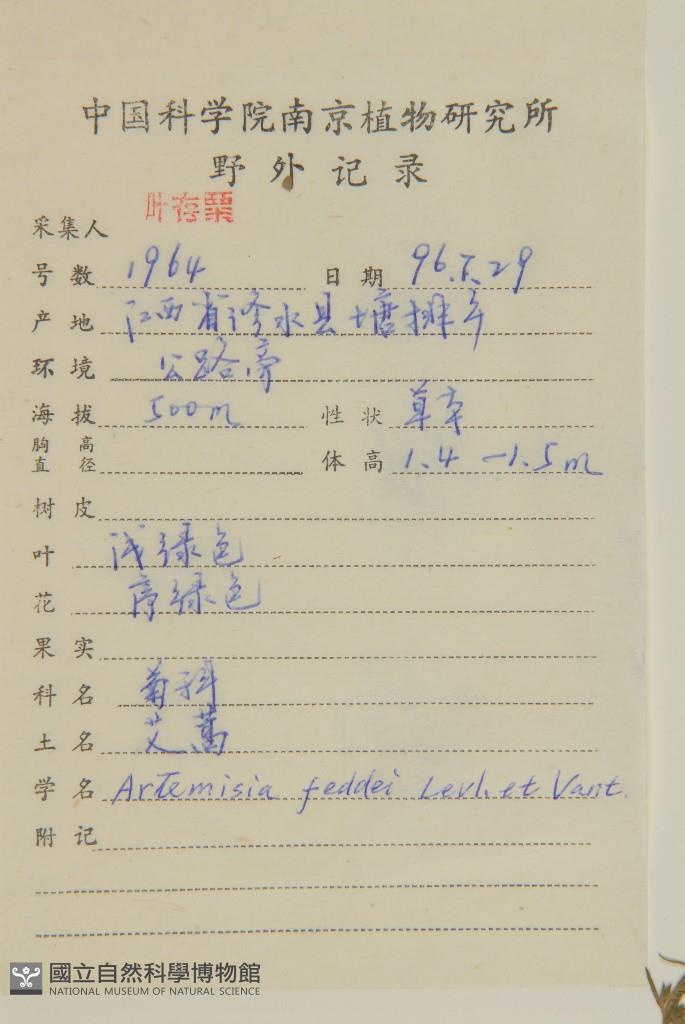 中国科学院南京植物研究所
野外记录
采集人 叶存粟
号数 1964 日期 96.5.29
产地 江西省修水县塘排乡
环境 公路旁
海拔 500m 性状 草本
胸高直径 体高 1.4—1.5m
树皮
叶 浅绿色
花 绿色
果实
科名 菊科
土名 艾蒿
学名 Artemisia feddei Levl. et Vant.
附记
國立自然科學博物館
NATIONAL MUSEUM OF NATURAL SCIENCE